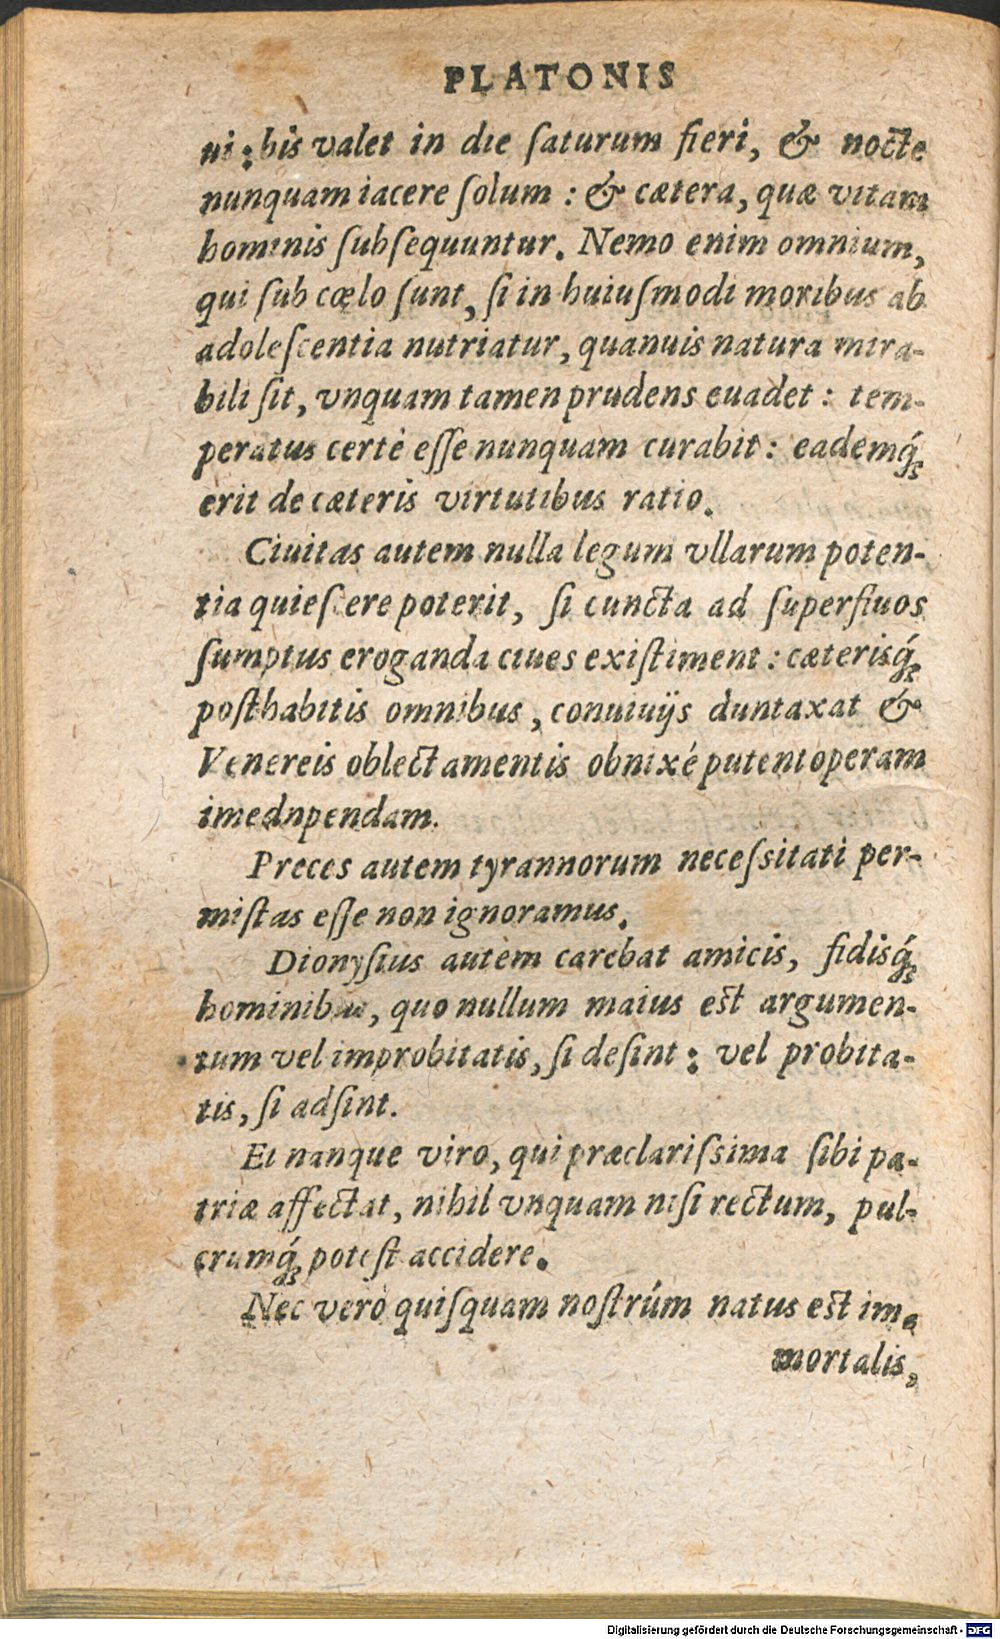 PLATONIS
ni: bis valet in die ſaturum fieri, & nocte
nunquam iacere ſolum : & cætera, quæ vitam
hominis ſubſequuntur. Nemo enim omnium,
qui ſub cœlo ſunt, ſi in huiuſmodi moribus ab
adoleſcentia nutriatur, quanuis natura mira-
bili ſit, vnquam tamen prudens euadet : tem-
peratus certè eſſe nunquam curabit : eademq́;
erit de cæteris virtutibus ratio.
Ciuitas autem nulla legum vllarum poten-
tia quieſcere poterit, ſi cuncta ad ſuperfluos
ſumptus eroganda ciues exiſtiment : cæterisq́;
poſthabitis omnibus, conuiuijs duntaxat &
Venereis oblectamentis obnixé putent operam
imednpendam.
Preces autem tyrannorum neceſsitati per-
miſtas eſſe non ignoramus.
Dionyſius autem carebat amicis, fidisq́;
hominibus, quo nullum maius eſt argumen-
tum vel improbitatis, ſi deſint : vel probita-
tis, ſi adſint.
Et nanque viro, qui præclariſsima ſibi pa-
triæ affectat, nihil vnquam niſi rectum, pul-
crumq́; poteſt accidere.
Nec verò quiſquam noſtrúm natus eſt im-
mortalis,
Digitalisierung gefördert durch die Deutsche Forschungsgemeinschaft - DFG